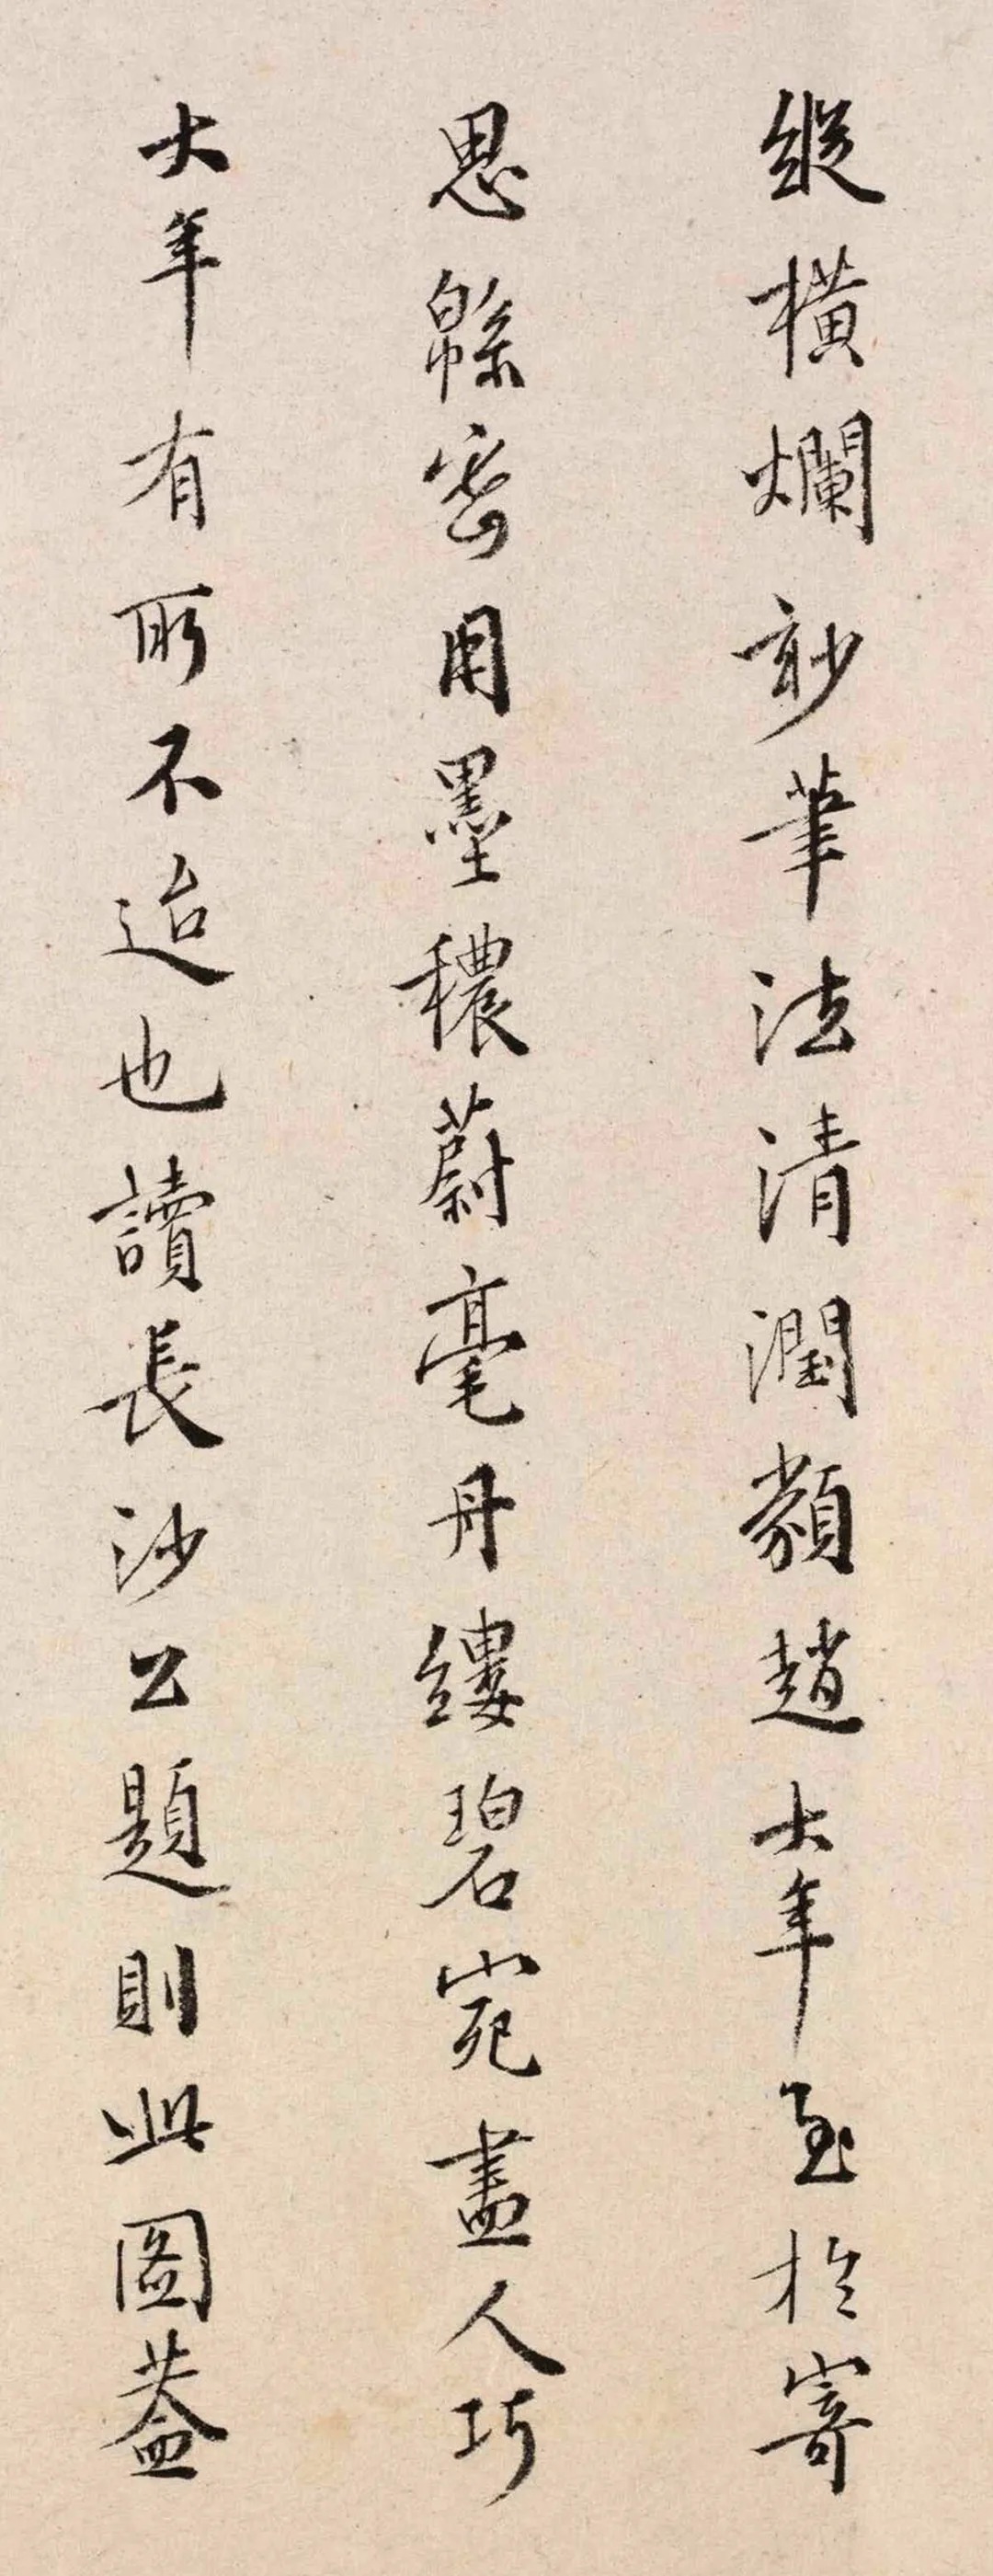 縱橫爛玅筆法清潤類趙大年至於寄
思緜密用墨穠蔚毫丹縷碧宛盡人巧
大年有所不迨也讀長沙公題則此圖蓋